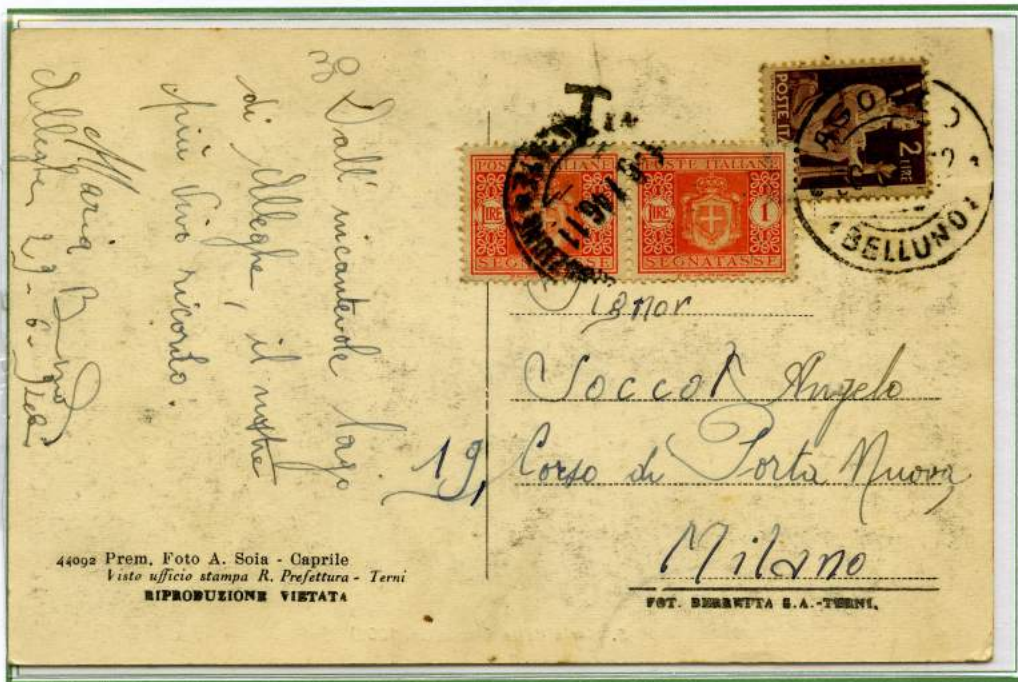 Dall' incantevole lago
di Alleghe, il nostro
più vivo ricordo.
Maria
Alleghe 29-6-
T
POSTE ITALIANE
1 LIRE
SEGNATASSE
POSTE ITALIANE
1 LIRE 1
SEGNATASSE
POSTE ITA
2 LIRE
(BELLUNO)
1.46.11
Signor
Soccol Angelo
19, Corso di Porta Nuova
Milano
44092 Prem. Foto A. Soia - Caprile
Visto ufficio stampa R. Prefettura - Terni
RIPRODUZIONE VIETATA
FOT. BERRETTA S.A.-TERNI.